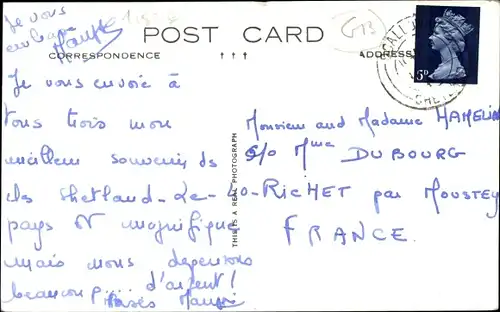 Je vous
embrasse
POST CARD
CORRESPONDENCE
ADDRESS
G13
5D
Je vous envoie à
vous trois mon
meilleur souvenir des
îles Shetland - Le
pays est magnifique
mais nous dépensons
beaucoup.... d'argent!
THIS IS A REAL PHOTOGRAPH
Monsieur and Madame HAMELIN
c/o Mme DUBOURG
40-RICHET par MOUSTEY
FRANCE.